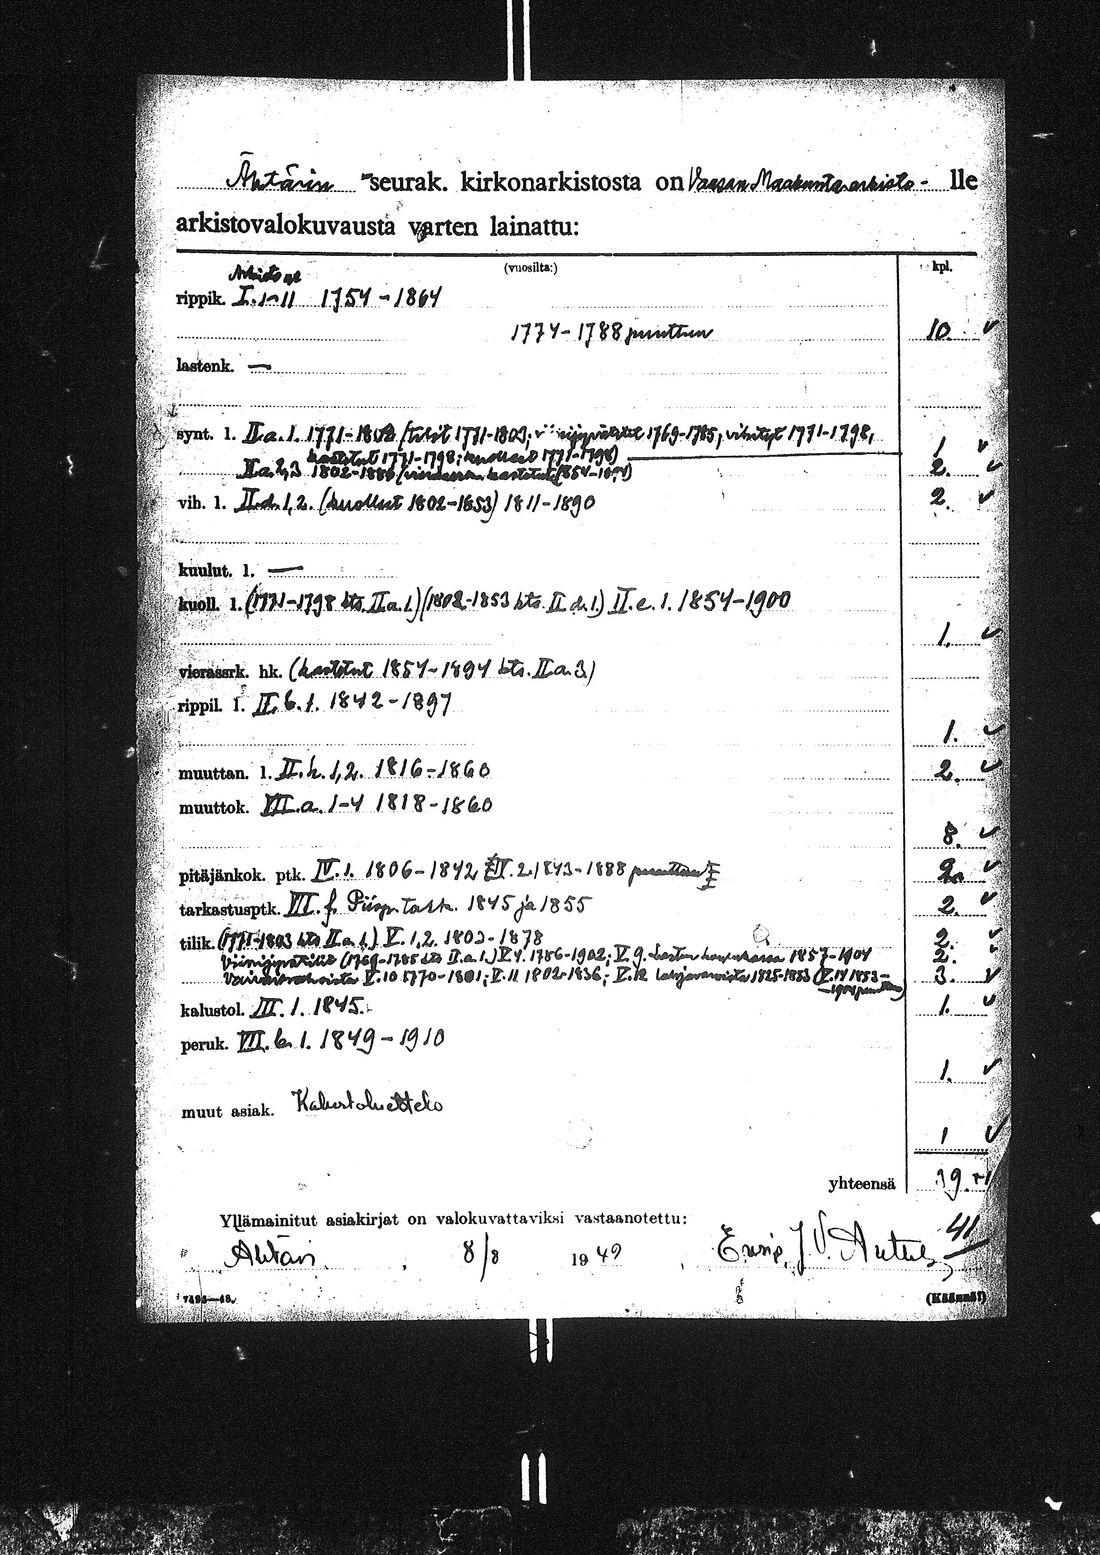 Ähtärin seurak. kirkonarkistosta on Vaasan Maakunta-arkisto - lle
arkistovalokuvausta varten lainattu:
(vuosilta:) kpl.
rippik. I. 1-11 1754-1864
1774-1788 puuttuu 10.
lastenk. —
synt. l. II.a.1. 1771-1802 (tilit 1771-1803; 1769-1785, vihityt 1771-1798, 1
kastetut 1771-1798; kuolleet 1771-1798)
II.a.2,3 1802-1886 (vierassrk. kastetut 1854-1894) 2.
vih. l. II.d.1,2. (kuolleet 1802-1853) 1811-1890 2.
kuulut. l. —
kuoll. l. (1771-1798 kts. II.a.1.) (1802-1853 kts. II.d.1.) II.e.1. 1854-1900
1.
vierassrk. hk. (kastetut 1854-1894 kts. II.a.3)
rippil. l. II.b.1. 1842-1897
1.
muuttan. l. II.h.1,2. 1816-1860 2.
muuttok. VII.a. 1-4 1818-1860
8.
pitäjänkok. ptk. IV.1. 1806-1842 2. 1843-1888 puuttuu 2.
tarkastusptk. III.f. Piisp. tark. 1845 ja 1855 2.
tilik. (1771-1803 kts II.a.1.) V.1,2. 1802-1878 2.
(1769-1785 kts II.a.1.) V.4. 1786-1902; V.9. 1857-1904 2.
V.10 1770-1801; V.11 1802-1836; V.12 1825-1853 (V.14 1853- 3.
-1904 puuttuu)
kalustol. III.1. 1845. 1.
peruk. VII.b.1. 1849-1910
1.
muut asiak. Kalustoluettelo
1
yhteensä 39.
41
Yllämainitut asiakirjat on valokuvattaviksi vastaanotettu:
Ähtäri, 8/8 1949 J.V.
(Käännä!)